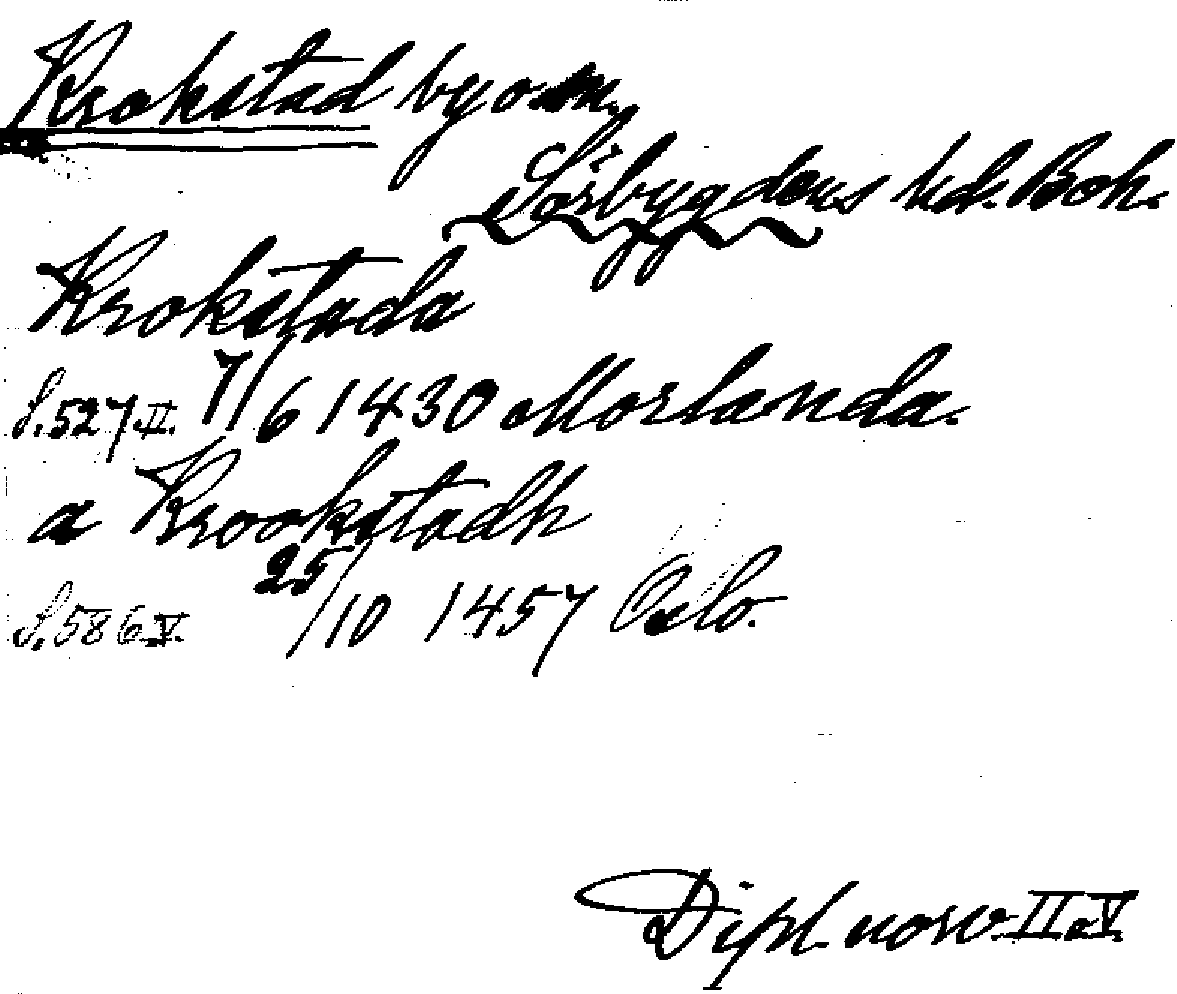 Krokstad by o sn.
Sörbygdens hd. Boh.
Krokstada
S.527 II. 7/6 1430 Morlanda.
a Krookstadh
S.586 V. 25/10 1457 Oslo.
Dipl. norv. II o. V.